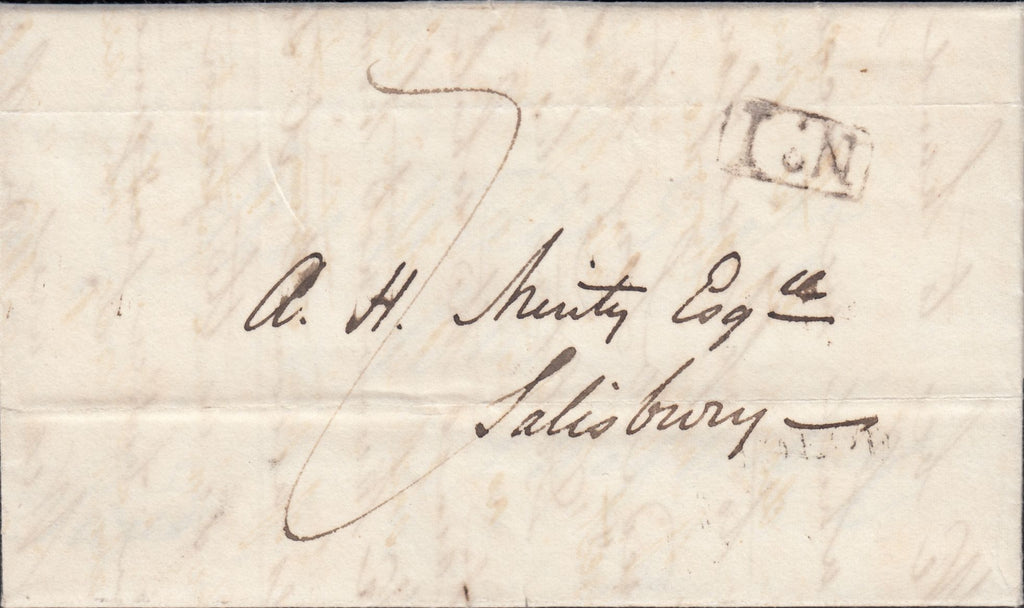 7
No. 1
A. H. Minty Esqre
Salisbury